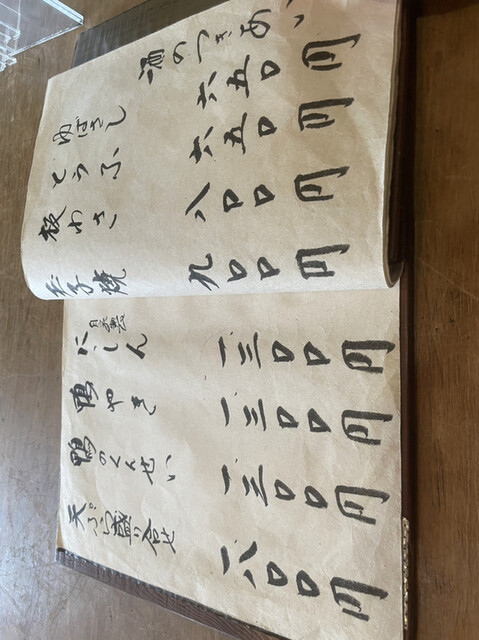 酒のつきあい
ゆばさし 六五〇円
とうふ 六五〇円
板わさ 八〇〇円
玉子焼 九〇〇円
自家製
にしん 一三〇〇円
鴨やき 一三〇〇円
鴨のくんせい 一三〇〇円
天ぷら盛り合せ 一八〇〇円